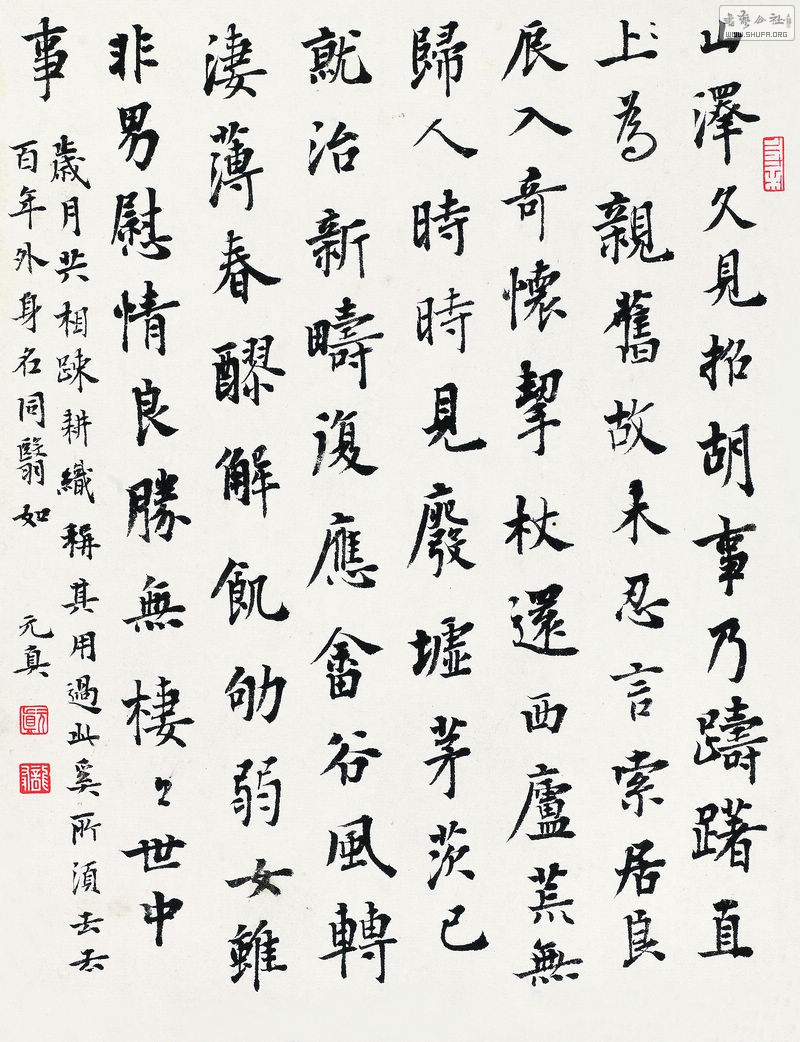 山澤久見招胡事乃躊躇直
上為親舊故未忍言索居良
辰入奇懷挈杖還西廬荒無
歸人時時見廢墟茅茨已
就治新疇復應畬谷風轉
淒薄春醪解飢劬弱女雖
非男慰情良勝無棲〻世中
事
歲月共相疎耕織稱其用過此奚所須去去
百年外身名同翳如
元真
书艺公社
WWW.SHUFA.ORG